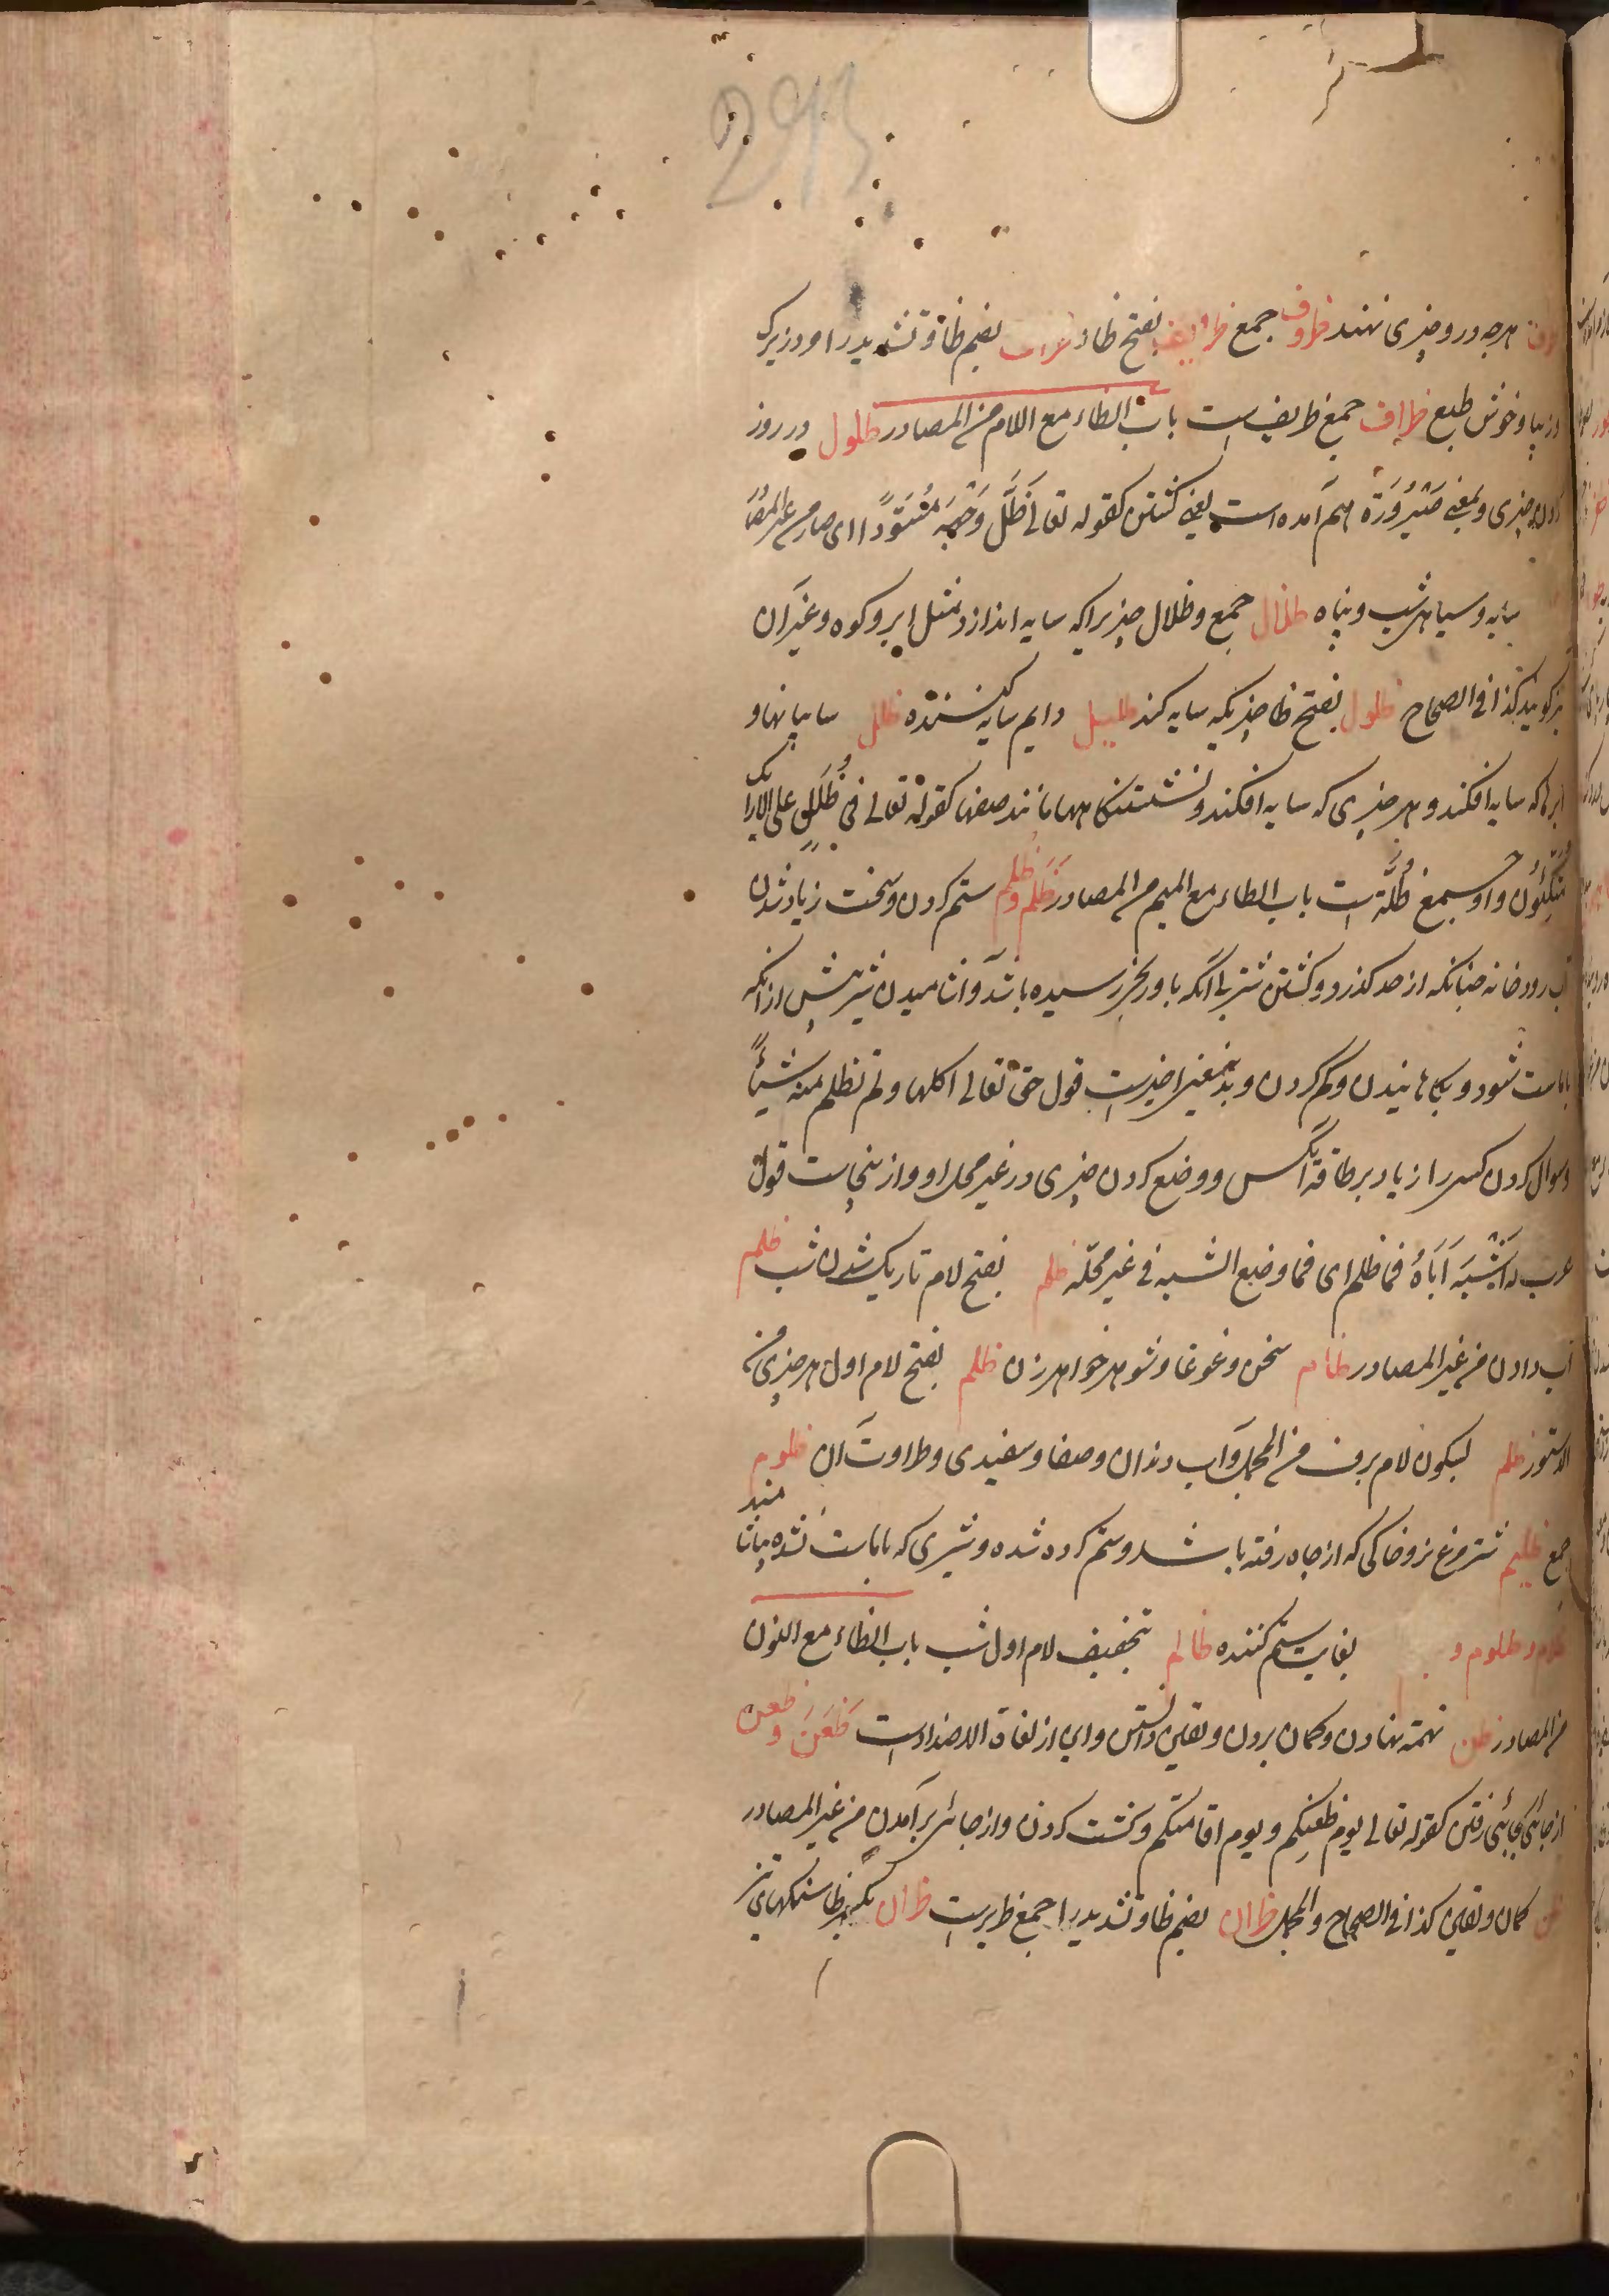 293
هرچه درو چیزی نهند ظروف جمع ظرایف بفتح ظا و ظراف بضم ظا و تشدید را مرد زیرک
و زیبا و خوش طبع ظراف جمع ظریف است باب الظاء مع اللام من المصادر ظلول در روز
کردن چیزی و بمعنی صَیْرُورَة هم آمده است یعنی کشتن کقوله تعالی فَظَلَّ وَجْهُهُ مُسْوَدًّا ای صار من غیر المصا
سایه و سیاهی شب و پناه ظلال جمع و ظلال چیزیرا که سایه اندازد مثل ابر و کوه و غیر آن
نیز گویند کذا فی الصحاح ظلول بفتح ظا چیزیکه سایه کند ظلیل دایم سایه کننده ظلل سایبانها و
ابرها که سایه افکند و هر چیزی که سایه افکند و نشستنکاهها مانند صفها کقوله تعالی فی ظُلَلٍ علی الارایک
مُتَّکِئُون و او جمع ظُلَّة است باب الظاء مع المیم من المصادر ظَلم و ظُلم ستم کردن و سخت زیاد شدن
آب رودخانه چنانکه از حد کذرد و کشتن شتر بی آنکه باو رنجی رسیده باشد و آشامیدن شیر پیش از آنکه
ماست شود و بکاهانیدن و کم کردن و بدین معنی اخیرست قول حق تعالی اکلها و لم تظلم منه شیئًا
و سوال کردن کسی را زیاد بر طاقة آنکس و وضع کردن چیزی در غیر محل او و از ینجاست قول
عرب من اَشْبَهَ اَبَاهُ فما ظلم ای فما وضع الشبه فی غیر محلّه ظلم بفتح لام تاریک شدن شب ظلم
آب دادن من غیر المصادر ظام سخن و غوغا و شوهر خواهر زن ظلم بفتح لام اول هر چیزی من
الدستور ظلم بسکون لام برف من المجمل و آب دندان و صفا و سفیدی و طراوت آن ظلوم
جمع ظلیم شتر مرغ نر و خاکی که از چاه رفته باشد و ستم کرده شده و شیری که ماست نشده بیاشامند
ظلام و ظلوم و بغایت ستم کننده ظالم بتخفیف لام اول شب باب الظاء مع النون
من المصادر ظن تهمة نهادن و کمان بردن و یقین دانستن و این از لغاة الاضداد است ظَعَن و ظعن
از جائی بجائی رفتن کقوله تعالی یوم ظعنکم و یوم اقامتکم و کشت کردن و از جای برآمدن من غیر المصادر
ظن کمان و یقین کذا فی الصحاح و المجمل ظران بضم ظا و تشدید را جمع ظریر است ظران بکسر ظا سنکهای تیز